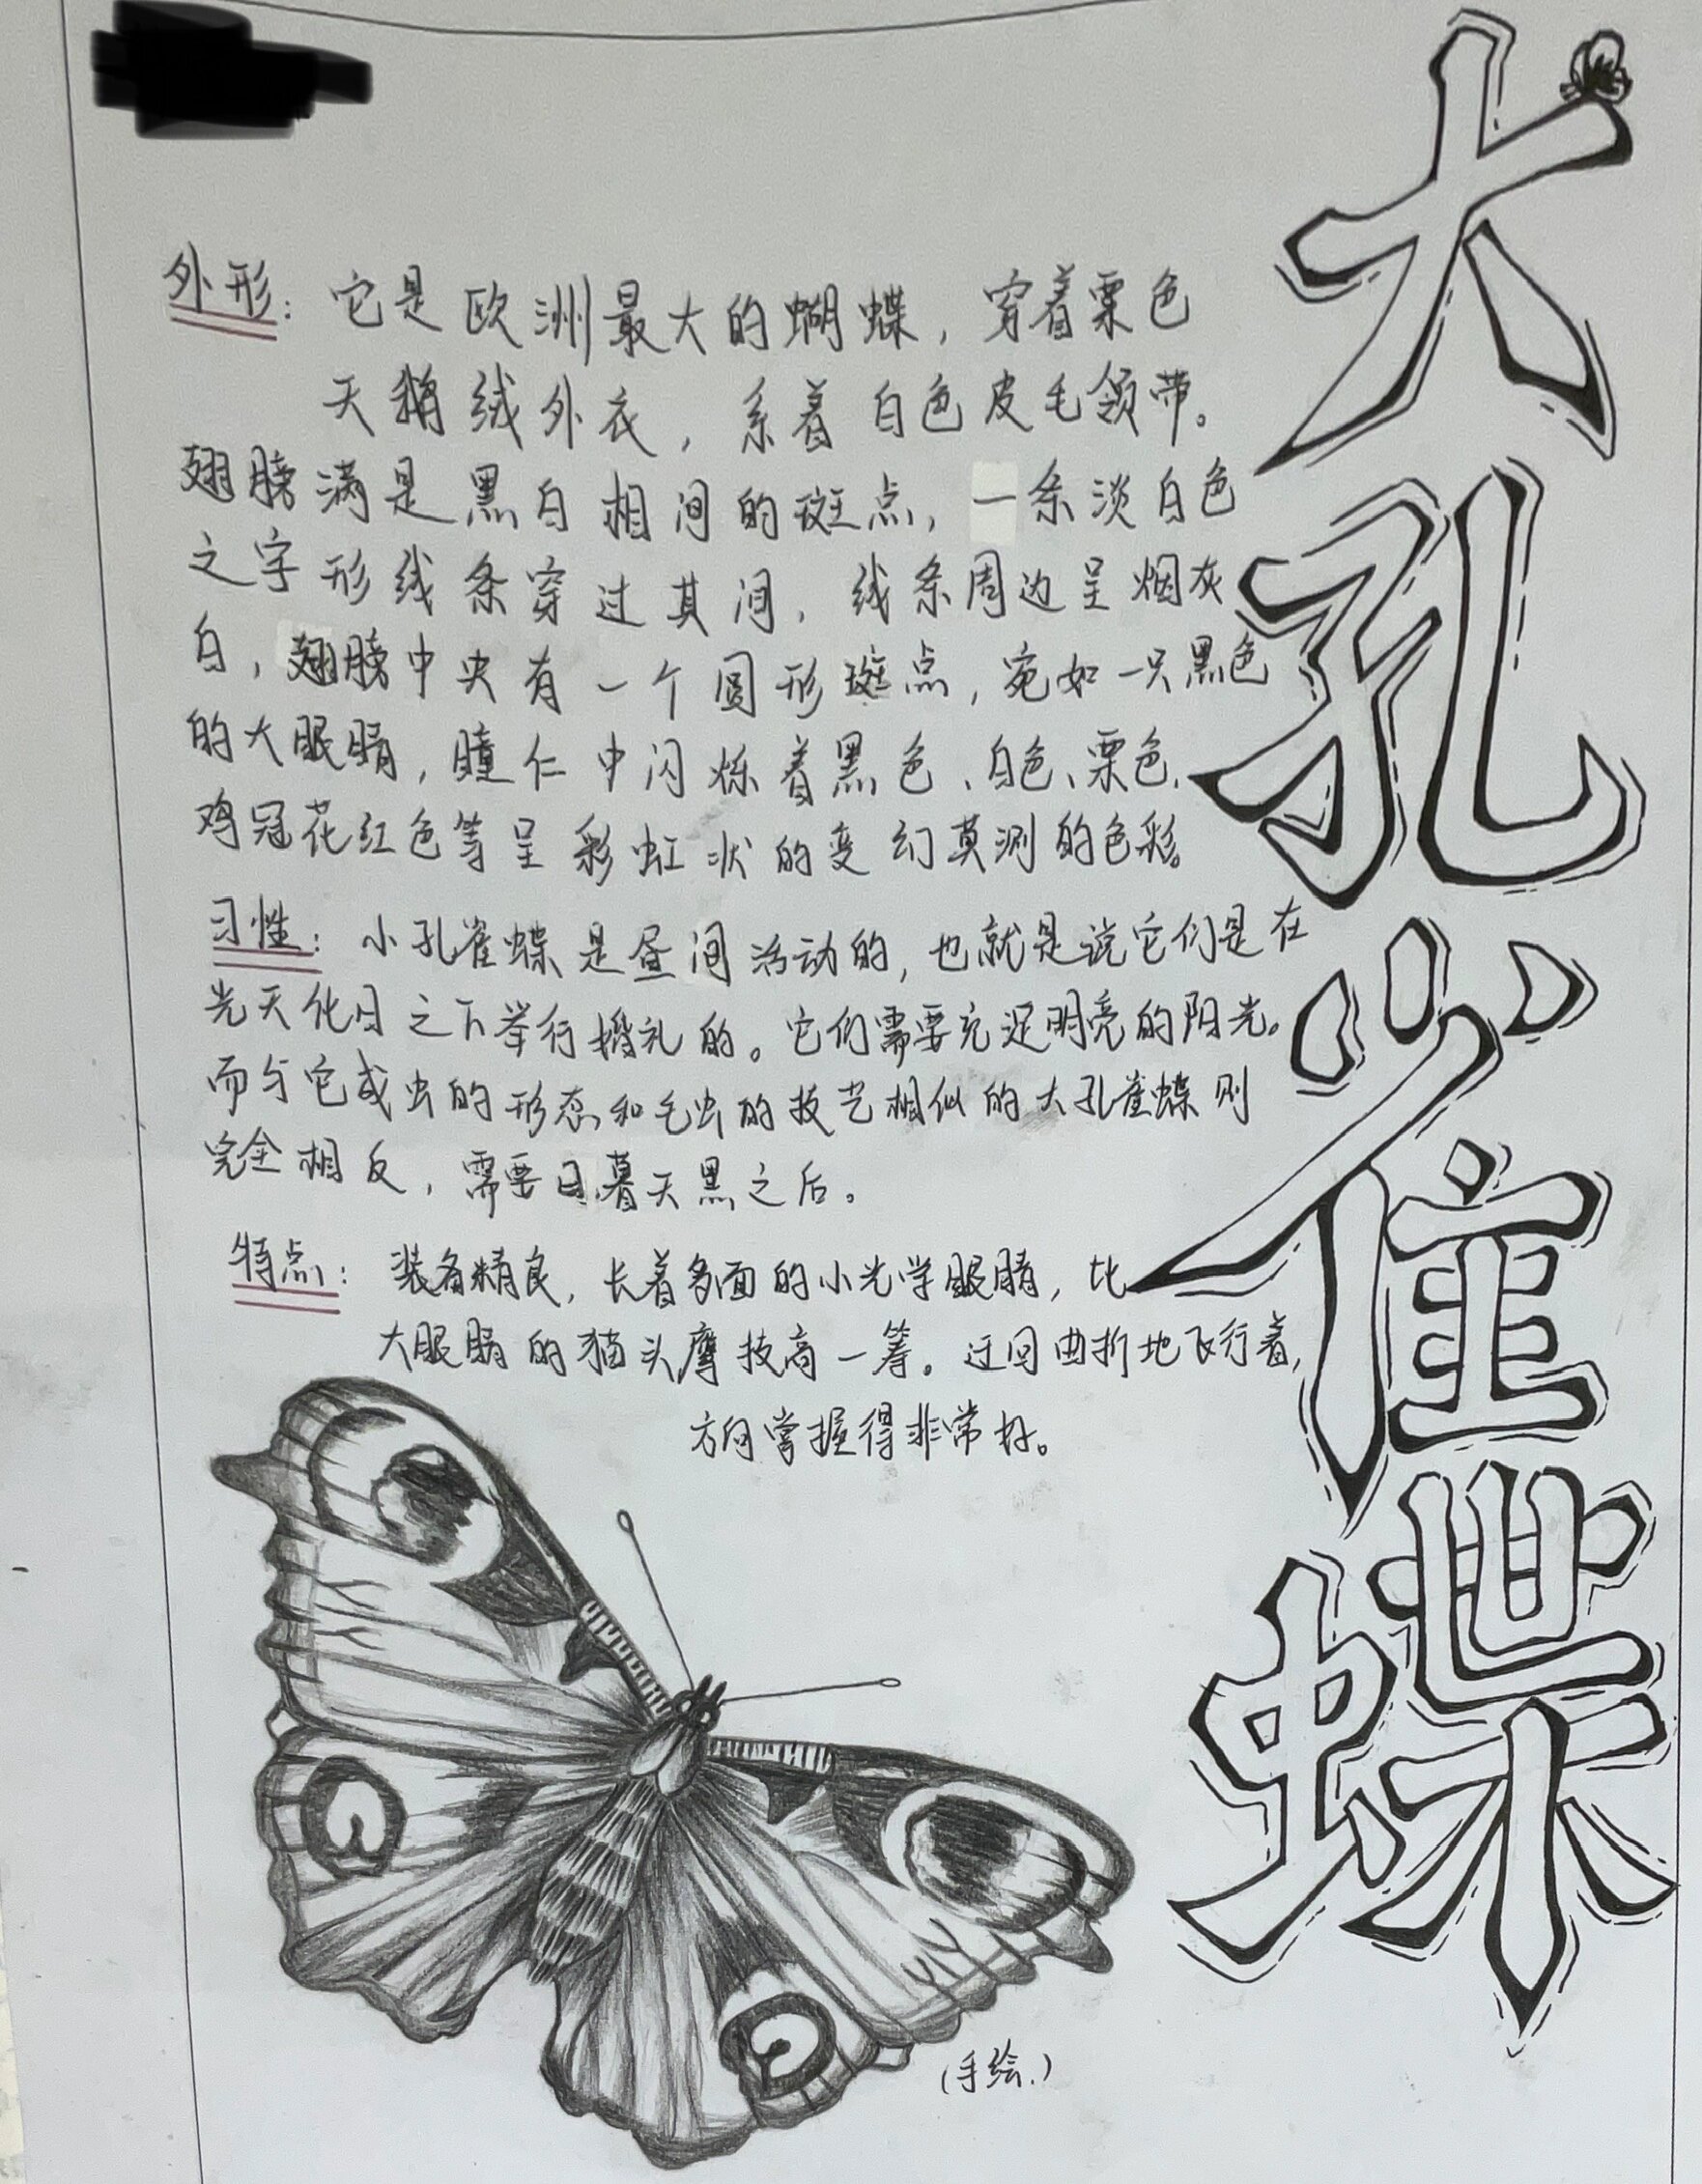 大孔雀蝶
外形：它是欧洲最大的蝴蝶，穿着栗色
天鹅绒外衣，系着白色皮毛领带。
翅膀满是黑白相间的斑点，一条淡白色
之字形线条穿过其间，线条周边呈烟灰
白，翅膀中央有一个圆形斑点，宛如一只黑色
的大眼睛，瞳仁中闪烁着黑色、白色、栗色、
鸡冠花红色等呈彩虹状的变幻莫测的色彩。
习性：小孔雀蝶是昼间活动的，也就是说它们是在
光天化日之下举行婚礼的。它们需要充足明亮的阳光。
而与它成虫的形态和毛虫的技艺相似的大孔雀蝶则
完全相反，需要日暮天黑之后。
特点：装备精良，长着多面的小光学眼睛，比
大眼睛的猫头鹰技高一筹。迂回曲折地飞行着，
方向掌握得非常好。
（手绘.）